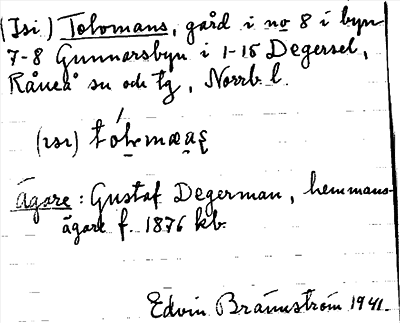 (Isi) Tolomans, gård i no 8 i byn
7-8 Gunnarsbyn i 1-15 Degersel,
Råneå sn och tg, Norrb. l.
(ısı)
Ägare: Gustaf Degerman, hemmans-
ägare f. 1876 kb.
Edvin Brännström 1941.